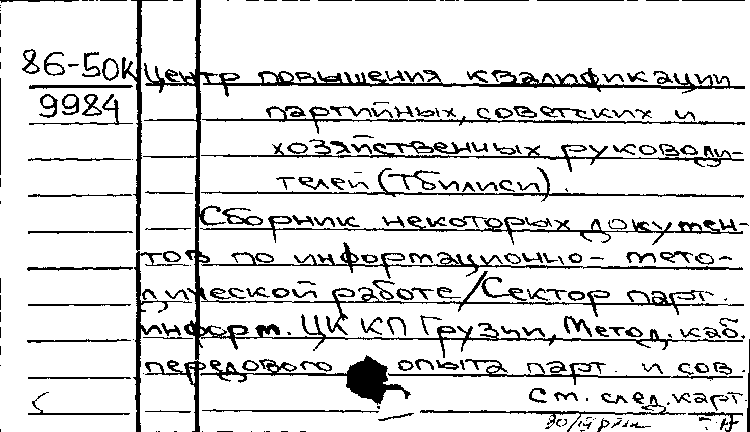 86-50К Центр повышения квалификации
9984 партийных, советских и
хозяйственных руководи-
телей (Тбилиси).
Сборник некоторых докумен-
тов по информационно-мето-
дической работе/Сектор парт.
информ. ЦК КП Грузии, Метод. каб.
передового опыта парт. и сов.
См. след. карт.